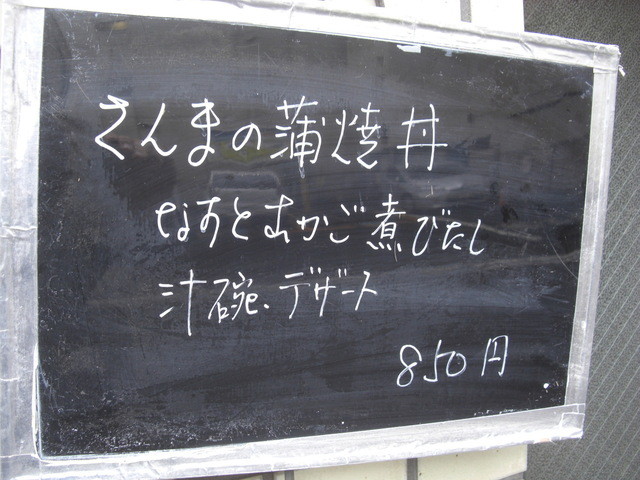 さんまの蒲焼丼
なすとむかご煮びたし
汁碗、デザート
850円